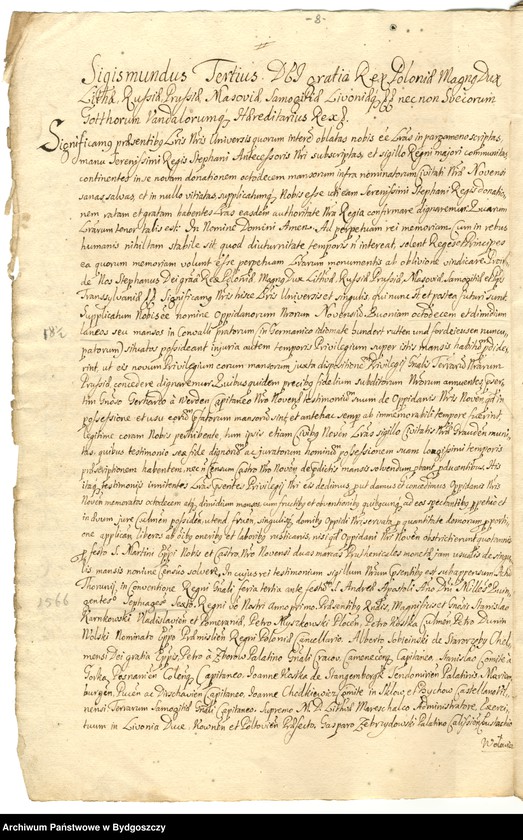 - 8 -
Sigismundus Tertius. DEI gratia Rex Poloniæ Magnq Dux
Lithæ, Russiæ Prussiæ, Masoviæ, Samogitiæ Livoniæq nec non Svecorum
Gotthorum Vandalorumq Hæreditarius Rex
Significamq præsentibq Lris Nris Universis quorum interest, oblatas nobis eē Lras in pargameno scriptas,
manu Serenissimi Regis Stephani Antecessoris Nri subscriptas, et sigillo Regni majori communitas
continentes in se novam donationem octodecem mansorum infra nominatorum Civitati Nræ Novensi
sanas, salvas, et in nullo vitiatas, supplicatumq Nobis esse ut eam Serenissimi Stephani Regis donatio-
nem ratam et gratam habentes Lras easdem authoritate Nra Regia confirmare dignaremur. Quarum
Lrarum tenor talis est. In Nomine Domini Amen. Ad perpetuam rei memoriam. Cum in rebus
humanis nihil tam stabile sit, quod diuturnitate temporis non intereat, solent Reges et Principes
ea quorum memoriam volunt esse perpetuam Lrarum monumentis ab oblivione vindicare. Proin-
de Nos Stephanus Dei gra Rex Poloniæ Magnq Dux Lithæ, Russiæ, Prussiæ, Masoviæ, Samogitiæ
Transsylvaniæ Significamq Nris hisce Lris Universis et singulis qui nunc st et postea futuri sunt
Supplicatum Nobis eē nomine Oppidanorum Nrorum Novensium Quoniam octodecem et dimidium
18½
laneos seu mansos in Convalle pratorum (in Germanico idiomate
patorum) situatos possideant injuria autem temporis Privilegium super istis mansis habitis perdide-
rint, ut eis novum Privilegium eorum mansorum juxta dispositionem Privilegij Gnalis Terrarum Nrarum
Prussiæ, concedere dignaremur. Quibus quidem precibq fidelium subditorum Nrorum annuentes
Gnoso Gerhardo à Werden Capitaneo Nro Novensi testimonium suum de Oppidanis Nris Noven qd in
possessione et usu eorum patorum mansorum sint et antehac semp ab immemorabili tempore fuerint,
legitime coram Nobis perhibente, tum ipsis etiam Civibq Noven Lras sigillo Civitatis Nræ Grauden muni-
tas, quibus testimonio se a fide dignorum ac juratorum hominum possessionem suam longissimi temporis
præscriptionem habentem, nec non censum Castro Nro Noven de prædictis mansis solvendum
itaq testimonijs innitentes Lras præsentes Privilegij Nri eis dedimus, put damus et concedimus Oppidanis Nris
Noven memoratos octodecem atq dimidium mansos cum fructibq et obventionibq quibuscunq ad eos spectantibq perpetuo et
in ævum jure Culmen possiden, utend, fruen, singulisq domibq Oppidi Nri servata p quantitate domorum
one applican, liberos ab oibq oneribq et laboribq rusticanis, nisi qd Oppidani Nri Noven obstricti erunt quotannis
p festo S. Martini Eppi Nobis et Castro Nro Novensi duas marcas Pruthenicales monetæ jam usualis de singu-
lis mansis nomine Census solvere. In cujus rei testimonium sigillum Nrum præsentibq est subappensum. Actum
Thorunij, in Conventione Regni Gnali feria tertia ante festum S. Andreæ Apostoli, Ano Dni Millmo Quin-
gentesimo Septuagesimo Sexto. Regni vero Nostri anno primo. Præsentibq Rndis, Magnificis et Gnosis Stanislao
1566
Karnkowski Wladislavien et Pomeraniæ, Petro Myszkowski Plocen, Petro Kostka Culmen, Petro Dunin
Wolski Nominato Eppo Præmislien Regni Poloniæ Cancellario. Alberto Sobieiuski de Starozreby Chel-
mensi Dei gratia Eppis, Petro à Zborow Palatino Gnali Cracov. Camenecenq Capitaneo. Stanislao Comite à
Gorka Posnanien Colenq Capitaneo. Joanne Kostka de Stangemborgk Sendomirien Palatinis Marien-
burgen, Pucen ac Dirschavien Capitaneo. Joanne Chodkiewicz Comite in Sklow, et Byschow Castellano Vil-
nensi Terrarum Samogitiæ Gnali Capitaneo. Supremo M.D. Lithæ Mareschalco Administratore Exerci-
tuum in Livonia Duce. Kownen et Teltovien Præfecto. Gasparo Zebrzydowski Palatino Calissien, Eustachio
Wolowicz
Archiwum Państwowe w Bydgoszczy